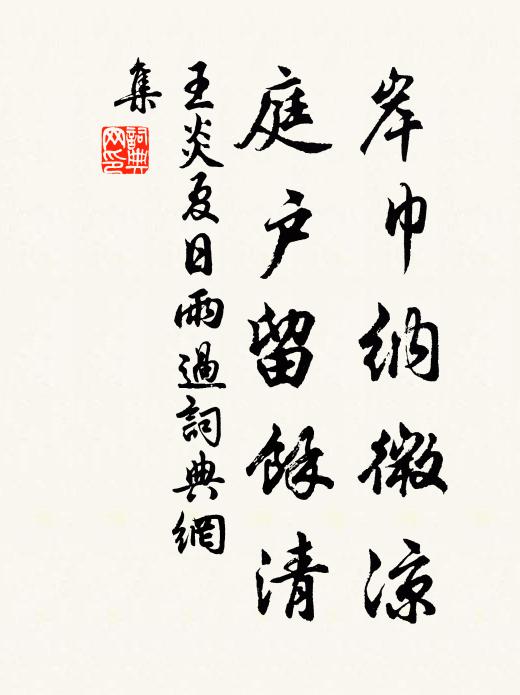 岸巾纳微凉
庭户留馀清
王炎夏日雨過詞典網
集
詞典
网印